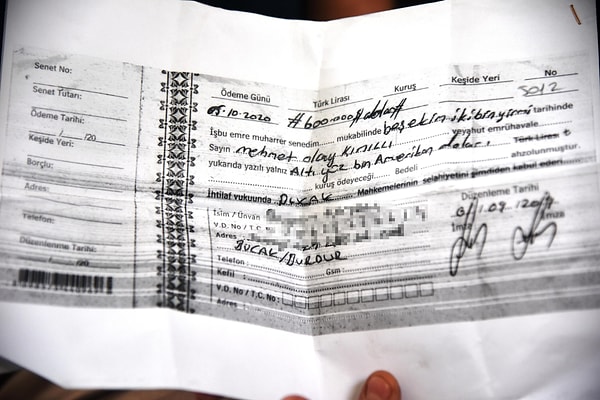 Senet No:
Senet Tutarı:
Ödeme Tarihi:
/ /20
Keşide Yeri:
Borçlu:
Adres:
Telefon:
Düzenlenme Tarihi:
/ /20
Ödeme Günü Türk Lirası Kuruş Keşide Yeri No
5012
05.10.2020 #600.000# dolar#
İşbu emre muharrer senedim mukabilinde beş ekim iki bin yirmi tarihinde
Sayın mehmet olay kınıklı veyahut emrühavale
yukarıda yazılı yalnız Altı yüz bin Amerikan doları Türk Lirası
kuruş ödeyeceği. Bedeli ahzolunmuştur.
İhtilaf vukuunda BUCAK Mahkemelerinin selahiyetini şimdiden kabul eder
Düzenleme Tarihi
İsim / Ünvan
V.D. No / T.C. No
Adres
BUCAK / BURDUR
İmza İmza
Telefon: Gsm:
Kefil:
V.D. No / T.C. No:
Adres